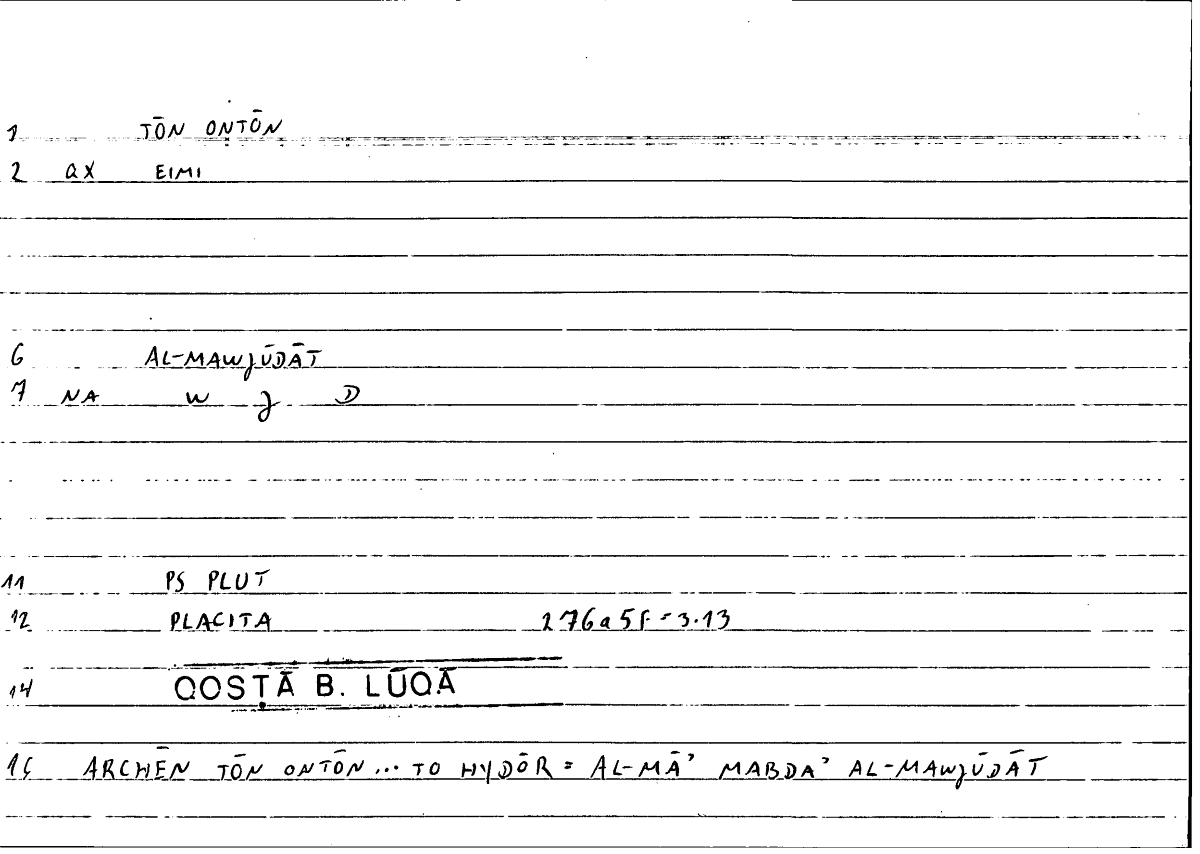 1 TŌN ONTŌN
2 QX EIMI
6 AL-MAWJŪDĀT
7 NA W J D
11 PS PLUT
12 PLACITA 276a5f=3.13
14 QOSṬĀ B. LŪQĀ
15 ARCHĒN TŌN ONTŌN... TO HYDŌR = AL-MĀʾ MABDAʾ AL-MAWJŪDĀT